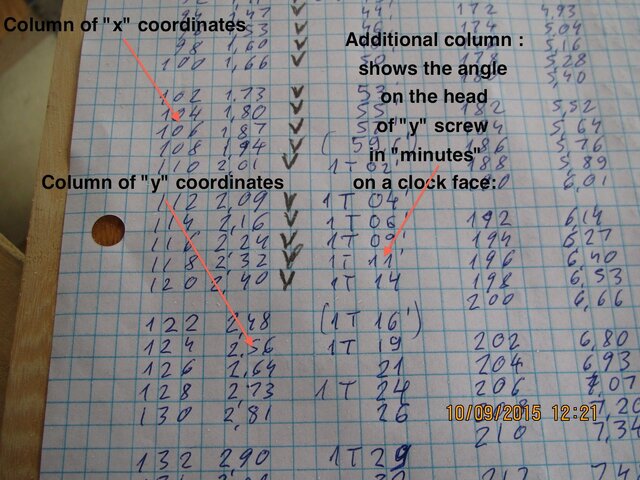 Column of "x" coordinates
Additional column :
shows the angle
on the head
of "y" screw
in "minutes"
on a clock face:
Column of "y" coordinates
172 4,93
5,04
98 1,60 5,16
100 1,66 5,28
5,40
102 1,73 53
104 1,80 55 182 5,52
106 1,87 5,64
108 1,94 186 5,76
110 2,01 1T 02' 188 5,89
6,01
112 2,09 1T 04'
114 2,16 1T 06' 192 6,14
2,24 1T 09' 194 6,27
118 2,32 1T 11' 196 6,40
120 2,40 1T 14 198 6,53
200 6,66
122 2,48 (1T 16')
124 2,56 1T 19 202 6,80
126 2,64 21 204 6,93
128 2,73 1T 24 206 7,07
130 2,81 26 7,20
210 7,34
132 2,90 1T 29
10/09/2015 12:21